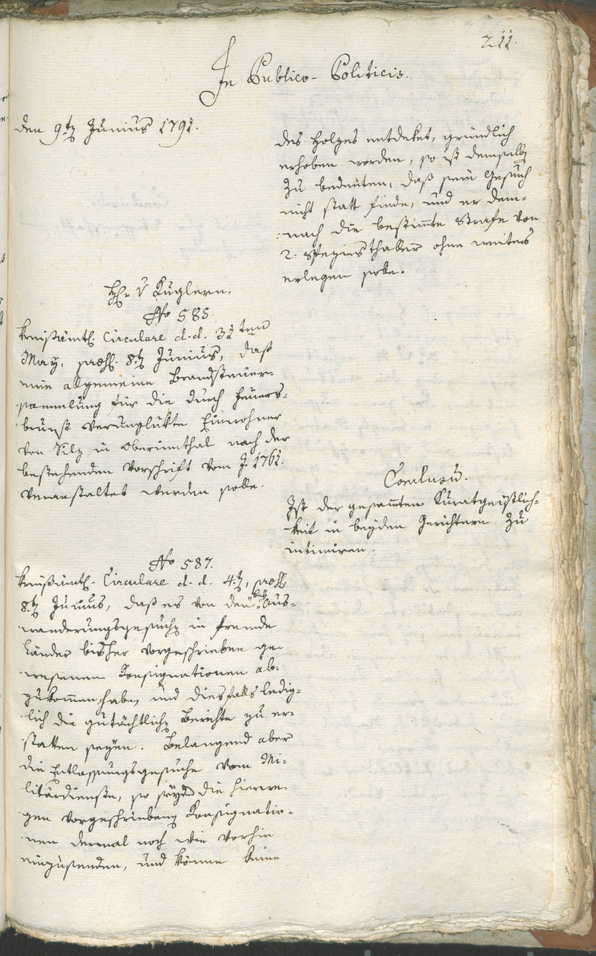 211.
In Publico-Politicis.
den 9ten Junius 1791.
des Holzes entdeket, gründlich
erhoben worden, so ist demselben
zu bedeuten, daß sein Gesuch
nicht statt finde, und er dem-
nach die bestimte Strafe von
2. Speziesthaler ohne weiters
erlegen solle.
Hr. v Kuglern.
No 585.
Kreisämtl. Circulare d. d. 31ten
May, praes. 8ten Junius, daß
eine allgemeine Brandsteuer-
sammlung für die durch Feuers-
brunst verunglükte Einwohner
von Silz in Oberinnthal nach der
bestehenden Vorschrift vom J. 1761.
veranstaltet werden solle.
Conclusum.
Ist der gesamten Kuratgeistlich-
keit in beyden Gerichtern zu
intimiren.
No 587.
Kreisämtl. Circulare d. d. 4ten, praes.
8ten Junius, daß es von den bey Aus-
wanderungsgesuchen in fremde
Länder bisher vorgeschrieben ge-
wesenen Consignationen ab-
zukommen habe, und diesfalls ledig-
lich die gutächtlichen Berichte zu er-
statten seyen. Belangend aber
die Entlassungsgesuche vom Mi-
litärdienste, so seyen die hierwe-
gen vorgeschriebenen Consignatio-
nen dermal noch wie vorhin
einzusenden, und könne keine